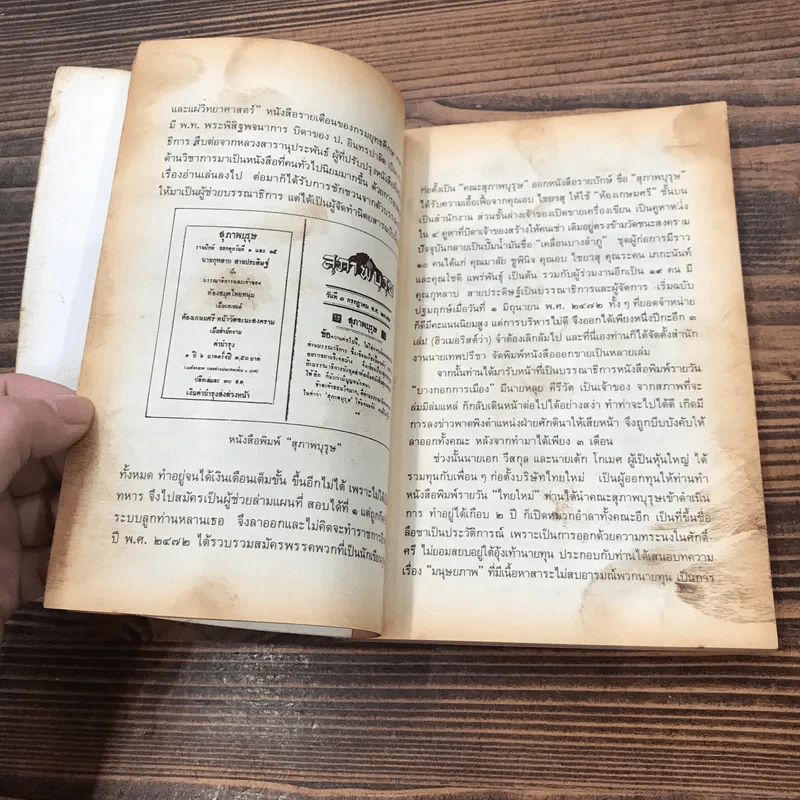 และแผ่วิทยาศาสตร์" หนังสือรายเดือนของกรมยุทธศึกษา
มี พ.ท. พระพิสิฐพจนาการ บิดาของ ป. อินทรปาลิต เป็น
ธิการ สืบต่อจากหลวงสารานุประพันธ์ ผู้ที่ปรับปรุงหนังสือ
ด้านวิชาการมาเป็นหนังสือที่คนทั่วไปนิยมมากขึ้น ด้วยการ
เรื่องอ่านเล่นลงไป ต่อมาก็ได้รับการชักชวนจากตัวบรรณา
ให้มาเป็นผู้ช่วยบรรณาธิการ แต่ได้เป็นผู้จัดทำนิตยสาร
สุภาพบุรุษ
รายปักษ์ ออกทุกวันที่ ๑ และ ๑๕
นายกุหลาบ สายประดิษฐ์
เป็น
บรรณาธิการและเจ้าของ
ห้องสมุดไทยหนุ่ม
เป็นเอเยนต์
ห้องเกษมศรี หน้าวัดชนะสงคราม
เป็นสำนักงาน
ค่าบำรุง
๑ ปี ๖ บาท ครึ่งปี ๓.๕๐ บาท
ปลีกเล่มละ ๓๐ ส.ต.
เงินค่าบำรุงส่งล่วงหน้า
สุภาพบุรุษ
วันที่ ๑ กรกฎาคม พ.ศ.
สุภาพบุรุษ
หนังสือพิมพ์ "สุภาพบุรุษ"
ทั้งหมด ทำอยู่จนได้เงินเดือนเต็มขั้น ขึ้นอีกไม่ได้ เพราะไม่ได้
ทหาร จึงไปสมัครเป็นผู้ช่วยล่ามแผนที่ สอบได้ที่ ๑ แต่ถูกกีด
ระบบลูกท่านหลานเธอ จึงลาออกและไม่คิดจะทำราชการอีก
ปี พ.ศ. ๒๔๗๒ ได้รวบรวมสมัครพรรคพวกที่เป็นนักเขียน
ก่อตั้งเป็น "คณะสุภาพบุรุษ" ออกหนังสือรายปักษ์ ชื่อ "สุภาพบุรุษ"
ได้รับความเอื้อเฟื้อจากคุณอบ ไชยวสุ ให้ใช้ "ห้องเกษมศรี" ชั้นบน
เป็นสำนักงาน ส่วนชั้นล่างเจ้าของเปิดขายเครื่องเขียน เป็นคูหาหนึ่ง
ใน ๔ คูหาที่บิดาเจ้าของสร้างให้คนเช่า เดิมอยู่ตรงข้ามวัดชนะสงคราม
ปัจจุบันกลายเป็นปั้มน้ำมันชื่อ "เคลื่อนบางลำภู" ชุดผู้ก่อการมีราว
๑๐ คนได้แก่ คุณมาลัย ชูพินิจ คุณอบ ไชยวสุ คุณระคน เภกะนันท์
และคุณโชติ แพร่พันธุ์ เป็นต้น รวมกับผู้ร่วมงานอีกเป็น ๑๙ คน มี
คุณกุหลาบ สายประดิษฐ์เป็นบรรณาธิการและผู้จัดการ เริ่มฉบับ
ปฐมฤกษ์เมื่อวันที่ ๑ มิถุนายน พ.ศ. ๒๔๗๒ ทั้งๆ ที่ยอดจำหน่าย
ก็ดีมีคะแนนนิยมสูง แต่การบริหารไม่ดี จึงออกได้เพียงหนึ่งปีกะอีก ๓
เล่ม (ฮิวเมอริสต์ว่า) จำต้องเลิกล้มไป และที่นี่เองท่านก็ได้จัดตั้งสำนัก
งานนายเทพปรีชา จัดพิมพ์หนังสือออกขายเป็นหลายเล่ม
จากนั้นท่านได้มารับหน้าที่เป็นบรรณาธิการหนังสือพิมพ์รายวัน
"บางกอกการเมือง" มีนายหลุย คีรีวัต เป็นเจ้าของ จากสภาพที่จะ
ล่มมิล่มแหล่ ก็กลับเดินหน้าต่อไปได้อย่างสง่า ทำท่าจะไปได้ดี เกิดมี
การลงข่าวพาดพิงตำแหน่งฝ่ายศักดินาให้เสียหน้า จึงถูกบีบบังคับให้
ลาออกทั้งคณะ หลังจากทำมาได้เพียง ๓ เดือน
ช่วงนั้นนายเอก วีสกุล และนายเต๊ก โกเมศ ผู้เป็นหุ้นใหญ่ ได้
รวมทุนกับเพื่อนๆ ก่อตั้งบริษัทไทยใหม่ เป็นผู้ออกทุนให้ท่านทำ
หนังสือพิมพ์รายวัน "ไทยใหม่" ท่านได้นำคณะสุภาพบุรุษเข้าดำเนิน
การ ทำอยู่ได้เกือบ ๒ ปี ก็เปิดหมวกอำลาทั้งคณะอีก เป็นที่ขึ้นชื่อ
ลือชาเป็นประวัติการณ์ เพราะเป็นการออกด้วยความทระนงในศักดิ์
ศรี ไม่ยอมสยบอยู่ใต้อุ้งเท้านายทุน ประกอบกับท่านได้เสนอบทความ
เรื่อง "มนุษยภาพ" ที่มีเนื้อหาสาระไม่สบอารมณ์พวกนายทุน เป็นการ